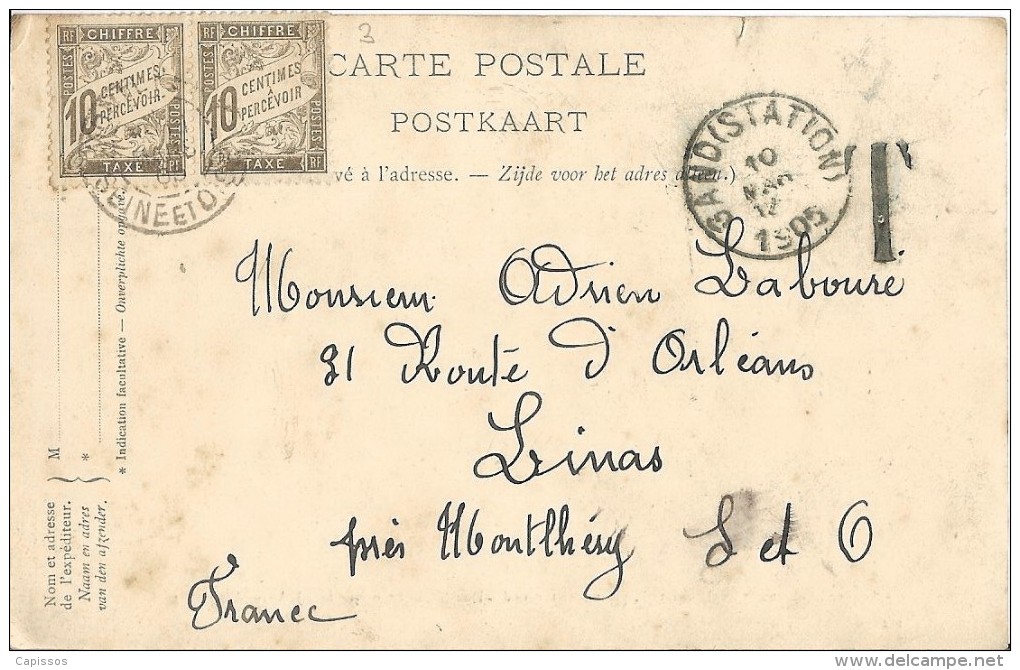 RF CHIFFRE
POSTES
10 CENTIMES
À
PERCEVOIR
POSTES
TAXE RF
RF CHIFFRE
POSTES
10 CENTIMES
À
PERCEVOIR
POSTES
TAXE RF
3
SEINE ET O
CARTE POSTALE
POSTKAART
vé à l'adresse. — Zijde voor het adres alleen.)
GAND (STATION)
10
1905
T
Monsieur Adrien Labouré
31 Route d'Orléans
Linas
près Montlhéry S et O
France
Nom et adresse
de l'expéditeur.
Naam en adres
van den afzender.
M
*
* Indication facultative — Onverplichte opgave.
Capissos
www.delcampe.net